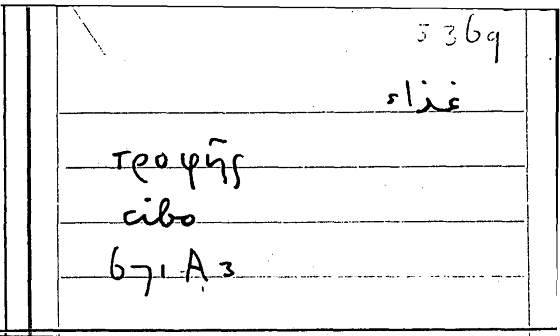 5369
غذاء
τροφῆς
cibo
671 A 3